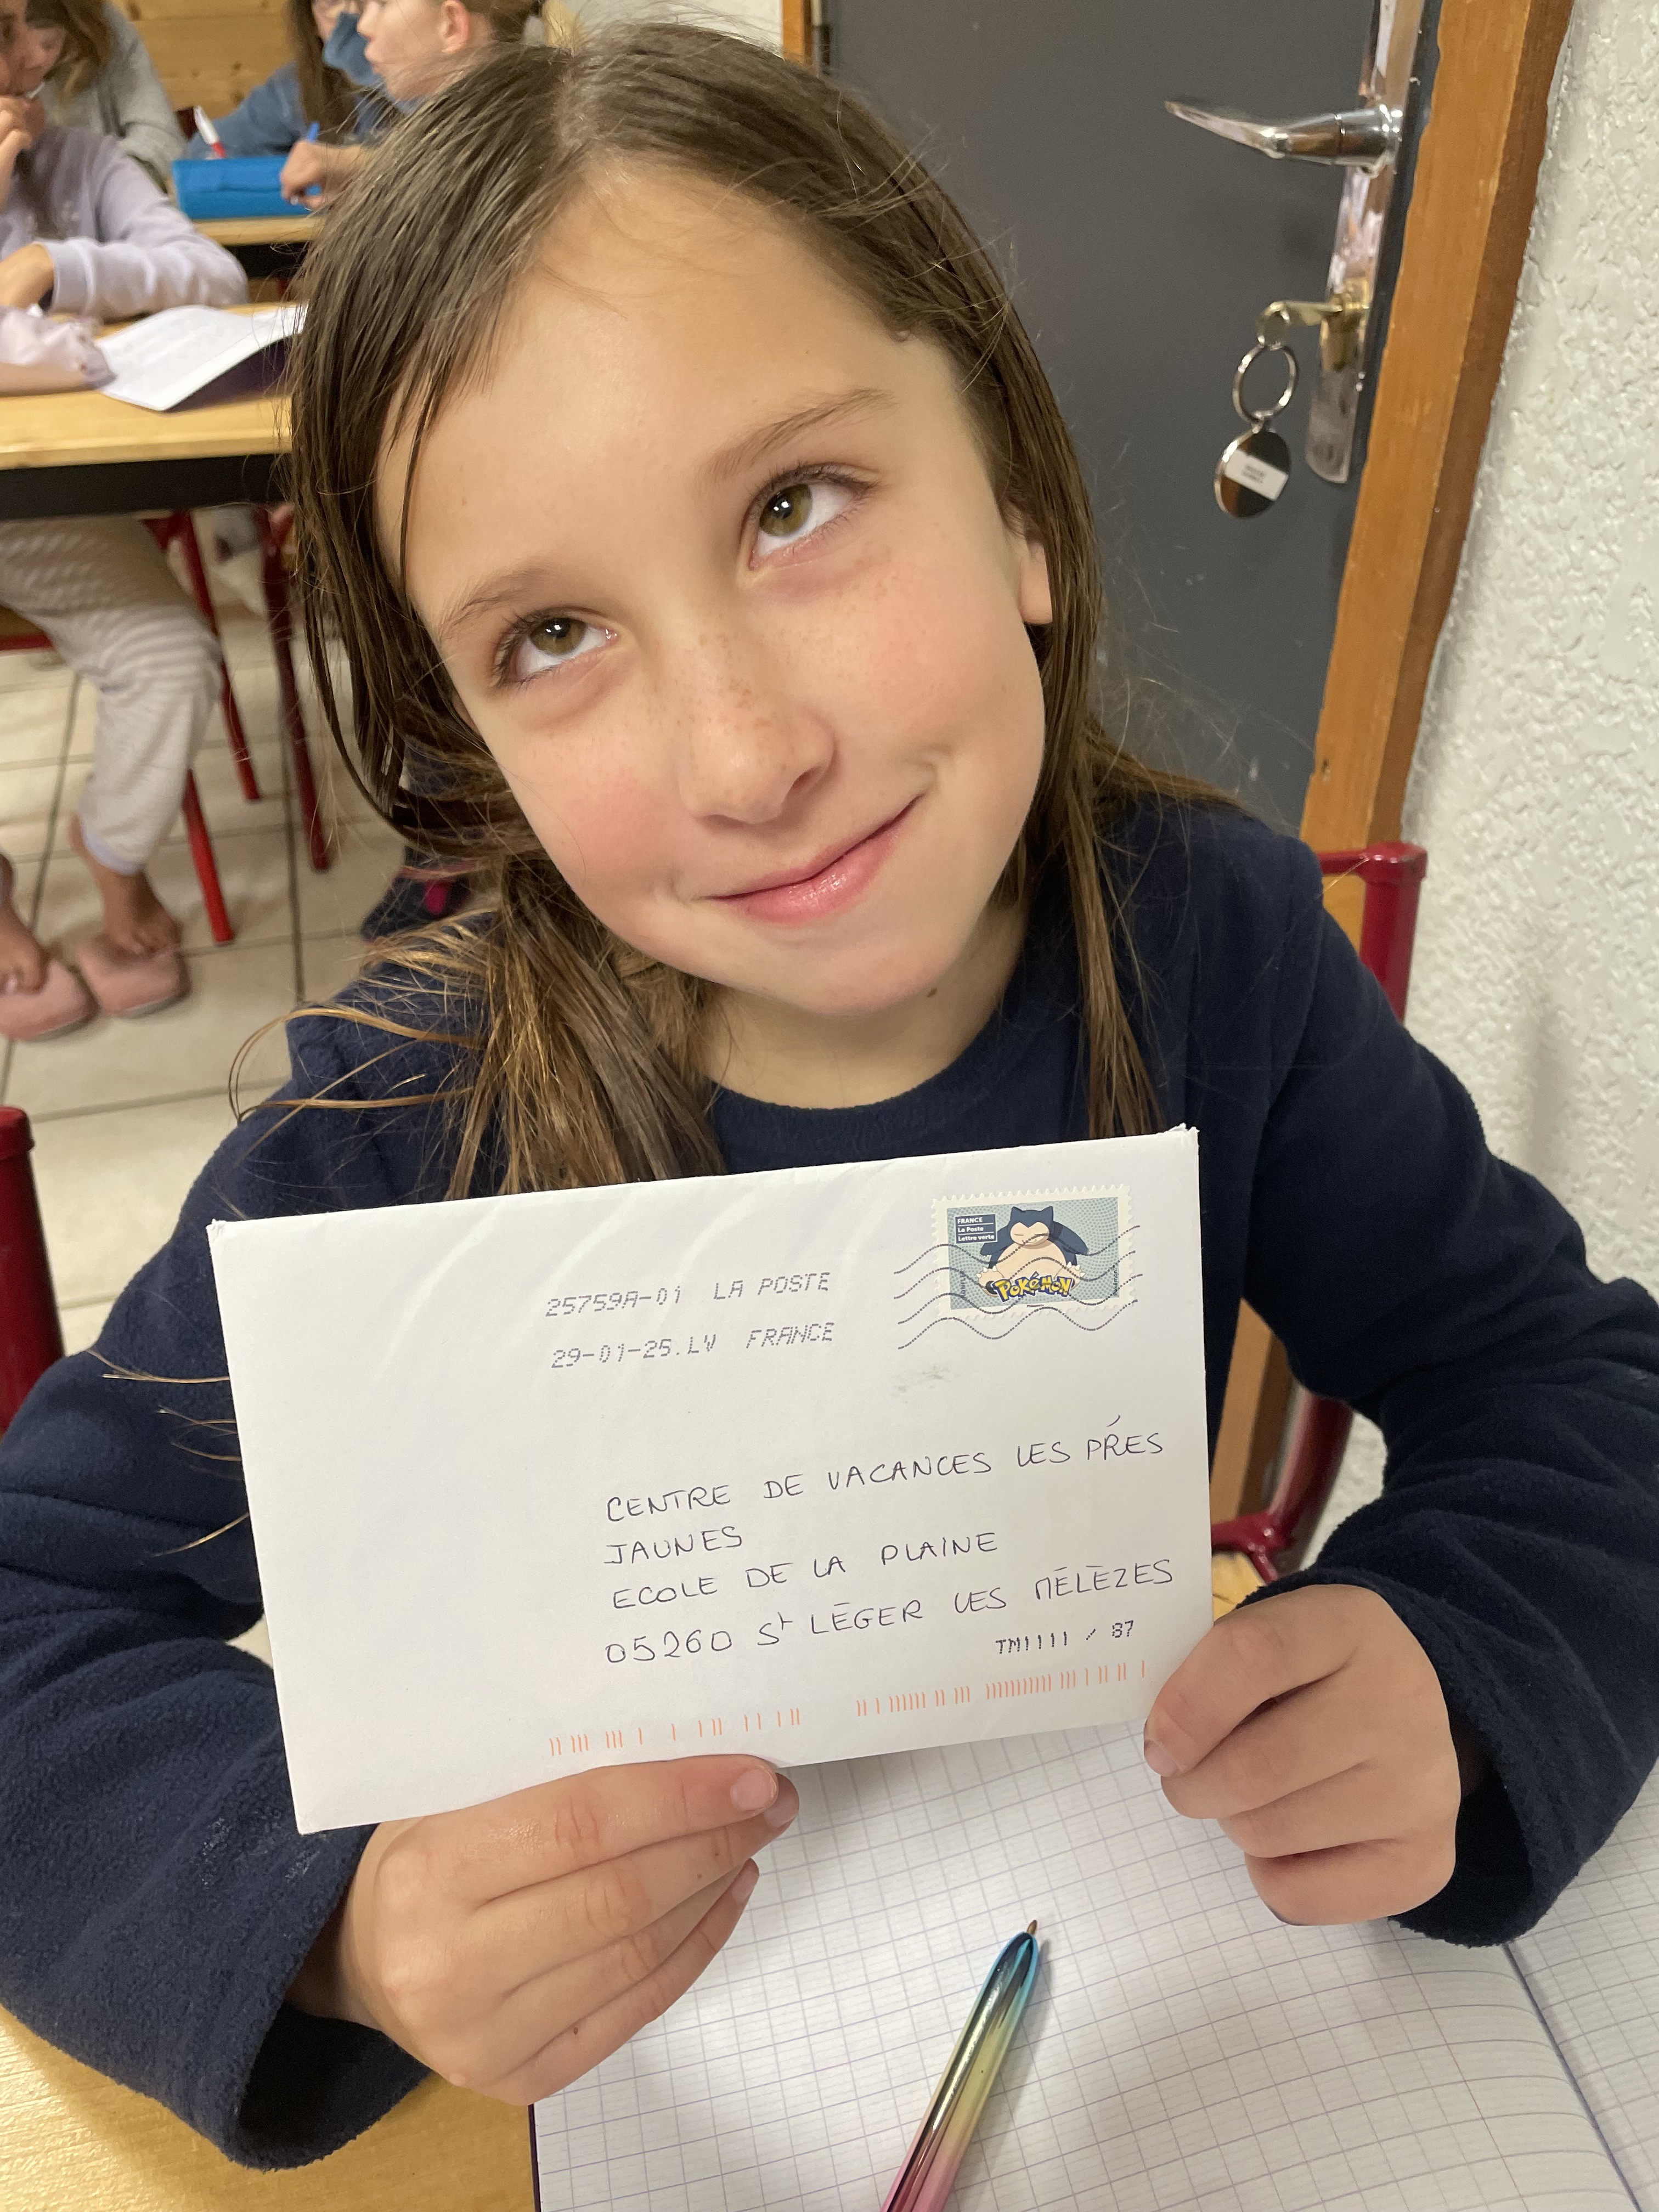 FRANCE
La Poste
Lettre verte
POKÉMON
25759A-01 LA POSTE
29-01-25.LV FRANCE
CENTRE DE VACANCES LES PRÉS
JAUNES
ECOLE DE LA PLAINE
05260 St LÉGER LES MÉLÈZES
TM1111 / 87